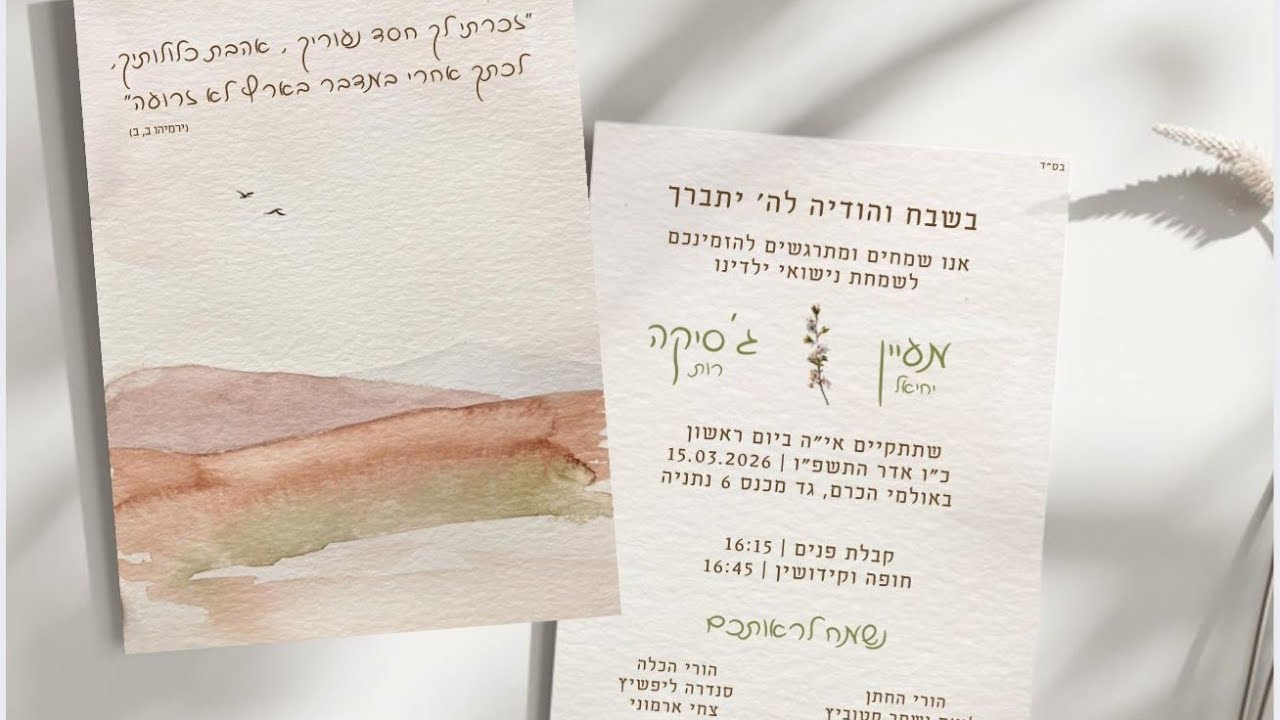 "זכרתי לך חסד נעוריך, אהבת כלולותיך,
לכתך אחרי במדבר בארץ לא זרועה"
(ירמיהו ב, ב)
בס"ד
בשבח והודיה לה' יתברך
אנו שמחים ומתרגשים להזמינכם
לשמחת נישואי ילדינו
מעיין ג'סיקה
יחיאל רות
שתתקיים אי"ה ביום ראשון
כ"ו אדר התשפ"ו | 15.03.2026
באולמי הכרם, גד מכנס 6 נתניה
קבלת פנים | 16:15
חופה וקידושין | 16:45
נשמח לראותכם
הורי החתן
הורי הכלה
סנדרה ליפשיץ
צחי ארמוני